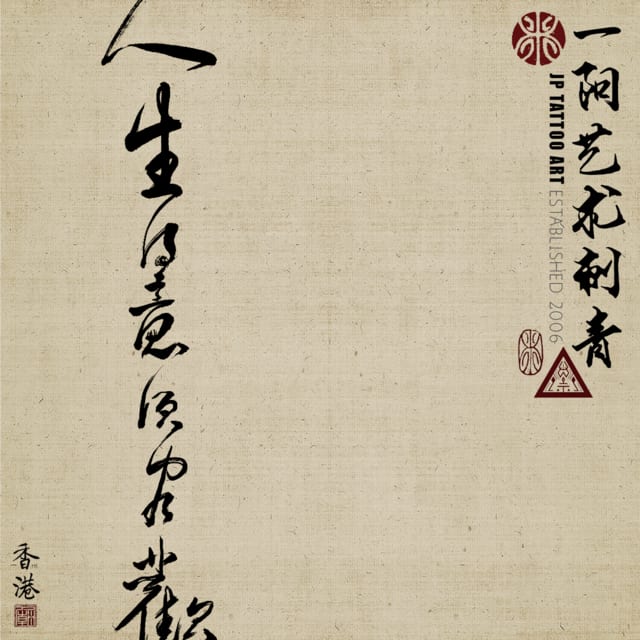 一阳艺术刺青
JP TATTOO ART ESTABLISHED 2006
人生得意须尽歡
香港